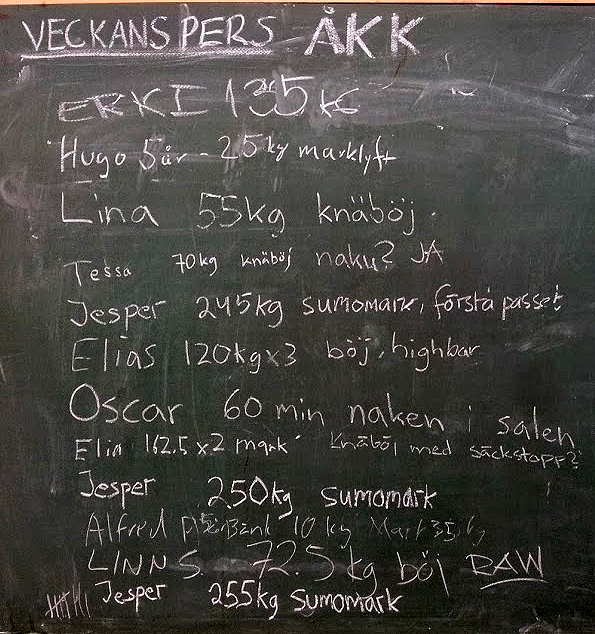 VECKANS PERS ÅKK
ERKI 135 KG
Hugo 5 år - 25 kg marklyft
Lina 55kg knäböj.
Tessa 70kg knäböj naku? JA
Jesper 245kg sumomark, första passet
Elias 120kgx3 böj, highbar
Oscar 60 min naken i salen
Elin 162.5 x2 mark Knäböj med säckstopp?
Jesper 250kg sumomark
Alfred Bänk 10 kg Mark 35 kg
LINN S. 72.5 kg böj RAW
Jesper 255kg sumomark